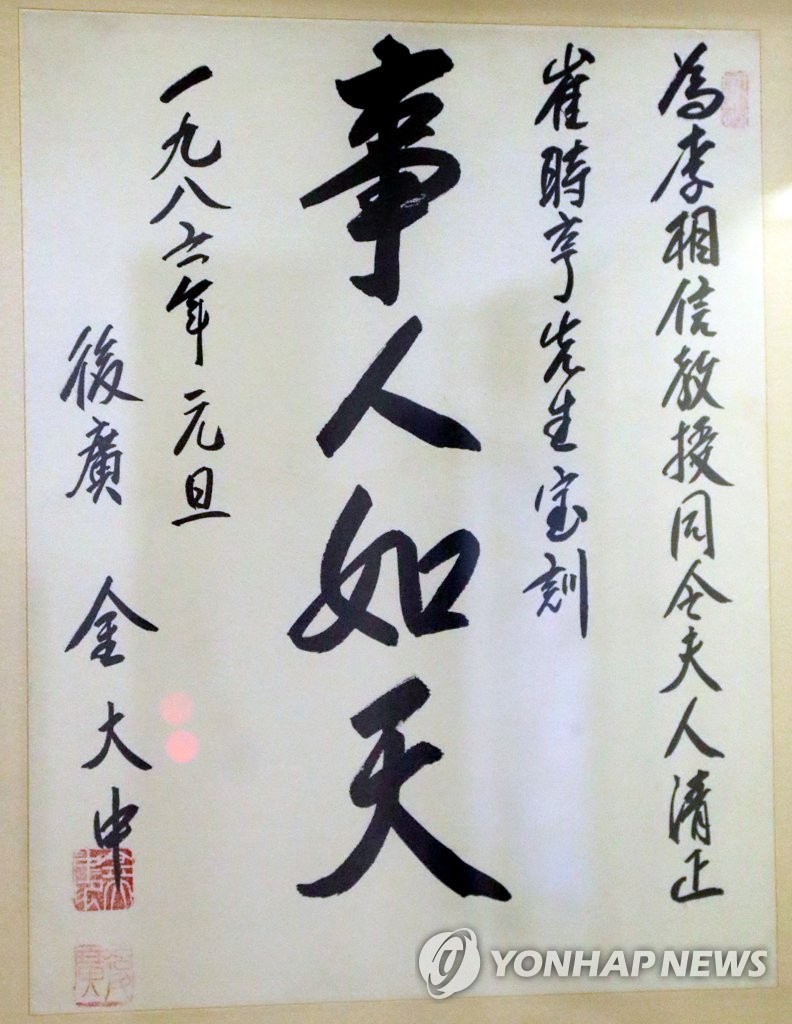 為李相信教授同令夫人清正
崔時亨先生宝刻
事人如天
一九八六年元旦
後廣 金大中
YONHAP NEWS